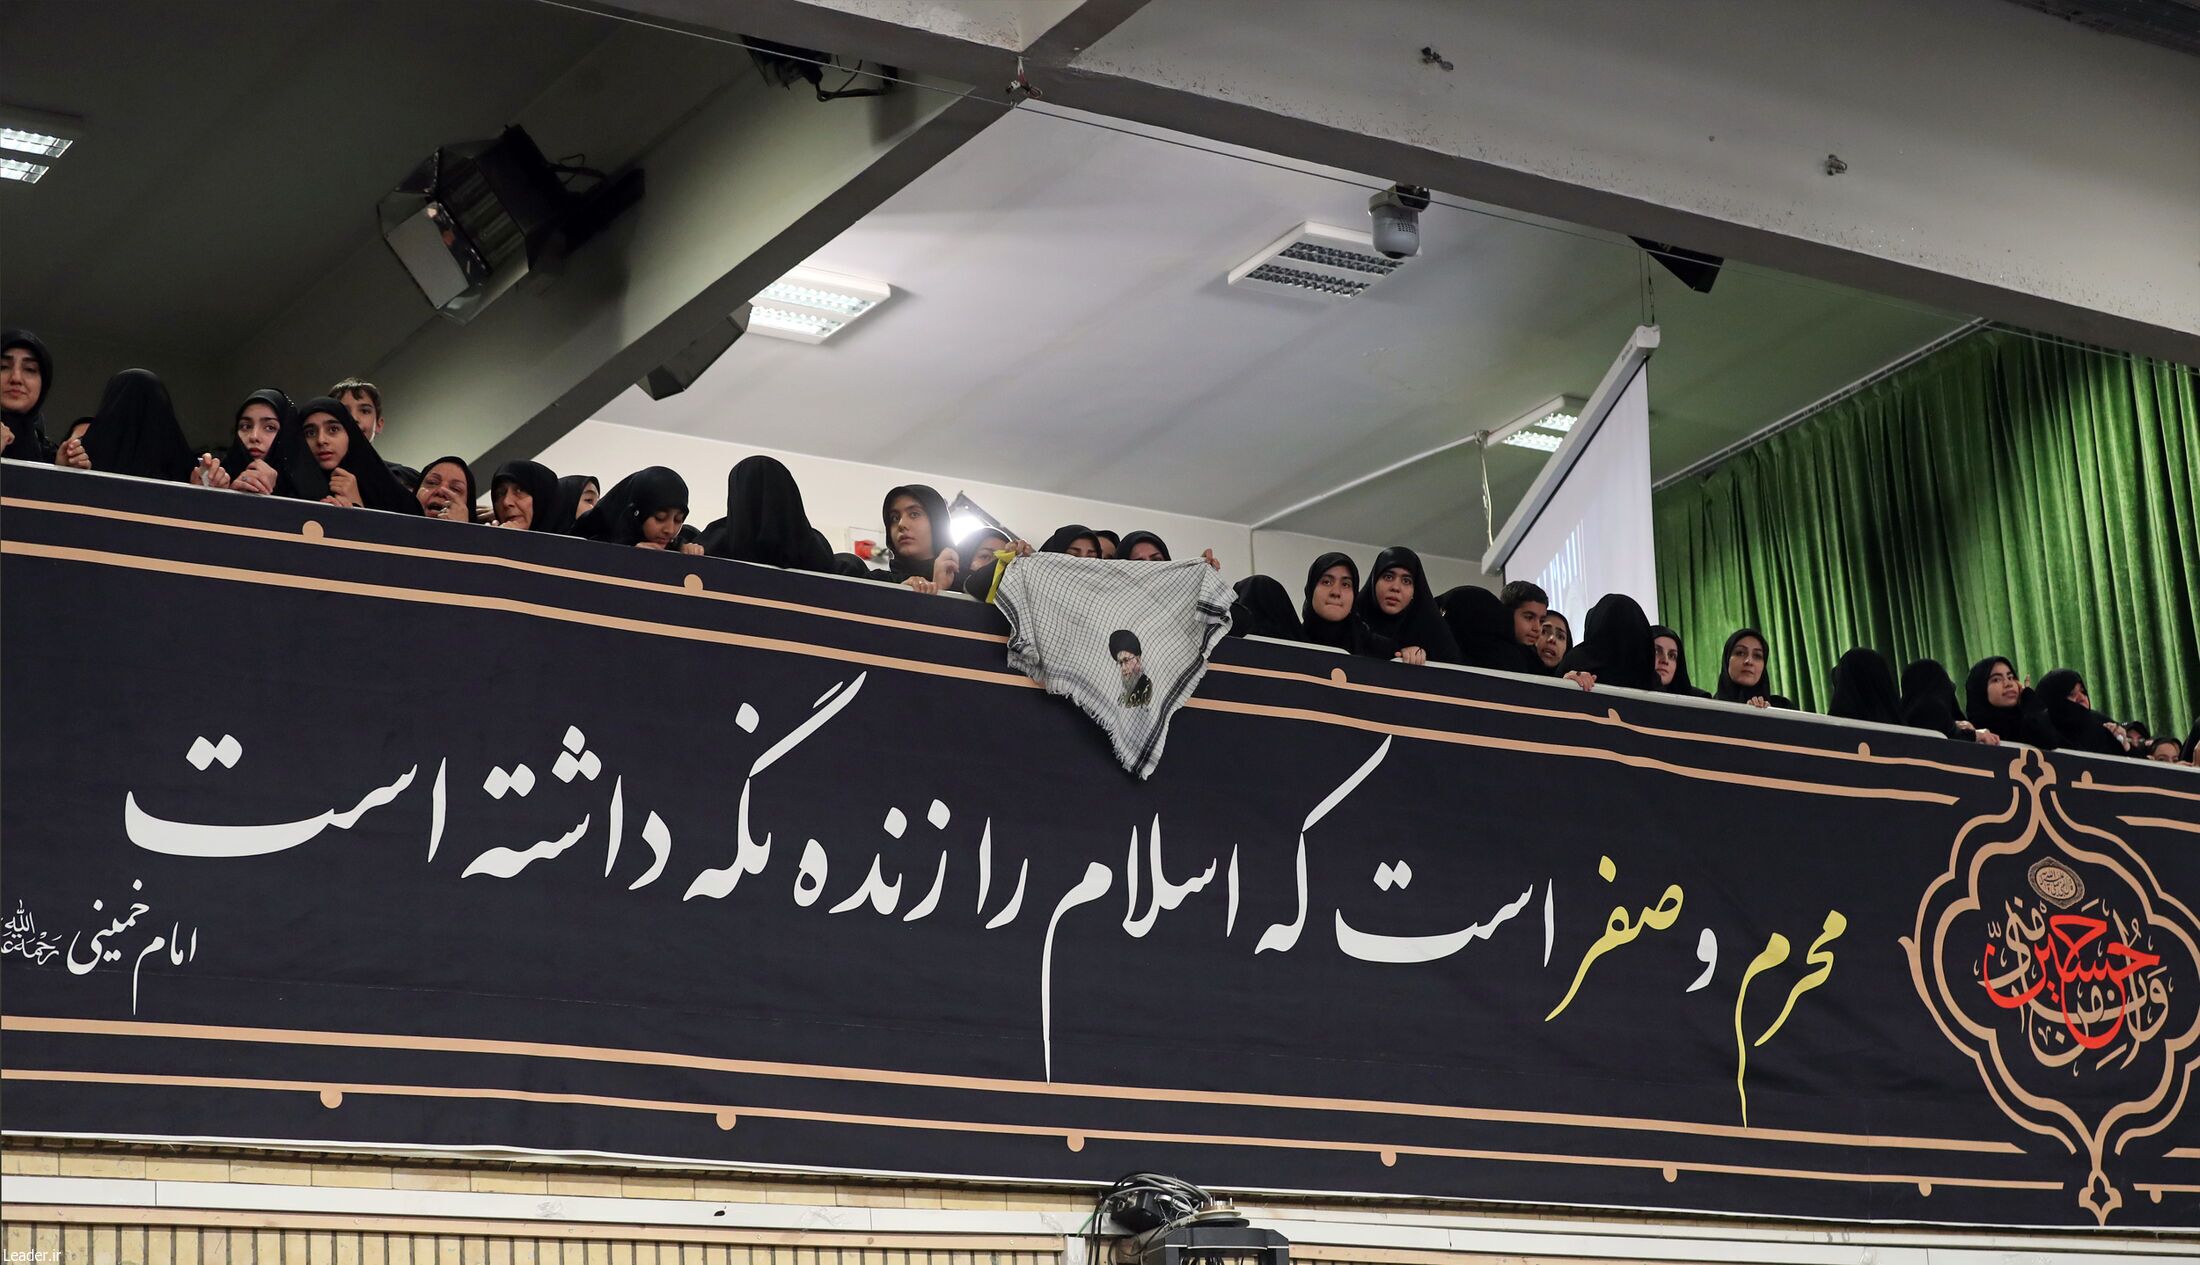 محرم و صفر است که اسلام را زنده نگه داشته است
امام خمینی رحمة‌الله
حسین منی وانا من حسین
Leader.ir